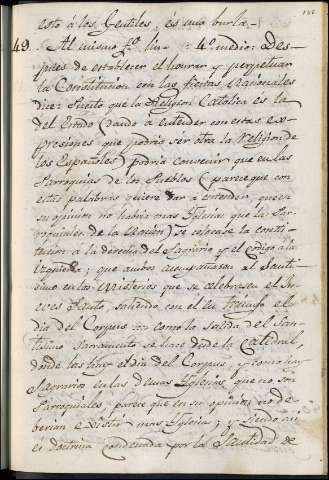 esto á los Gentiles, és una burla.
49. Al mismo fº lin- : 4º medio: Des-
pues de establecer el honrar y perpetuar
la Constitucion con las fiestas Nacionales
dice: Puesto que la Religion Catolica es la
del Estado (dando á entender con estas ex-
presiones que podria ser otra la Religion de
los Españoles) podria convenir que en las
Parroquias de los Pueblos (parece que con
estas palabras quiere dar á entender, que en
su opinion no habria mas Iglesias que las Par-
roquiales de la Nacion) se colocase la consti-
tucion á la derecha del Sagrario y el codigo á la
Izquierda; que ambos acompañasen al Santi-
simo en los Misterios que se celebrasen el Ju-
eves Santo, saliendo con el en triunfo el
dia del Corpus asi como la salida del San-
tisimo Sacramento se hace desde la Catedral,
donde las hay el dia del Corpus, y como hay
Sagrarios en las demas Iglesias, que no son
Parroquiales, parece que en su opinion no de-
berian existir mas Iglesia; y siendo
doctrina condenada por la Santidad de